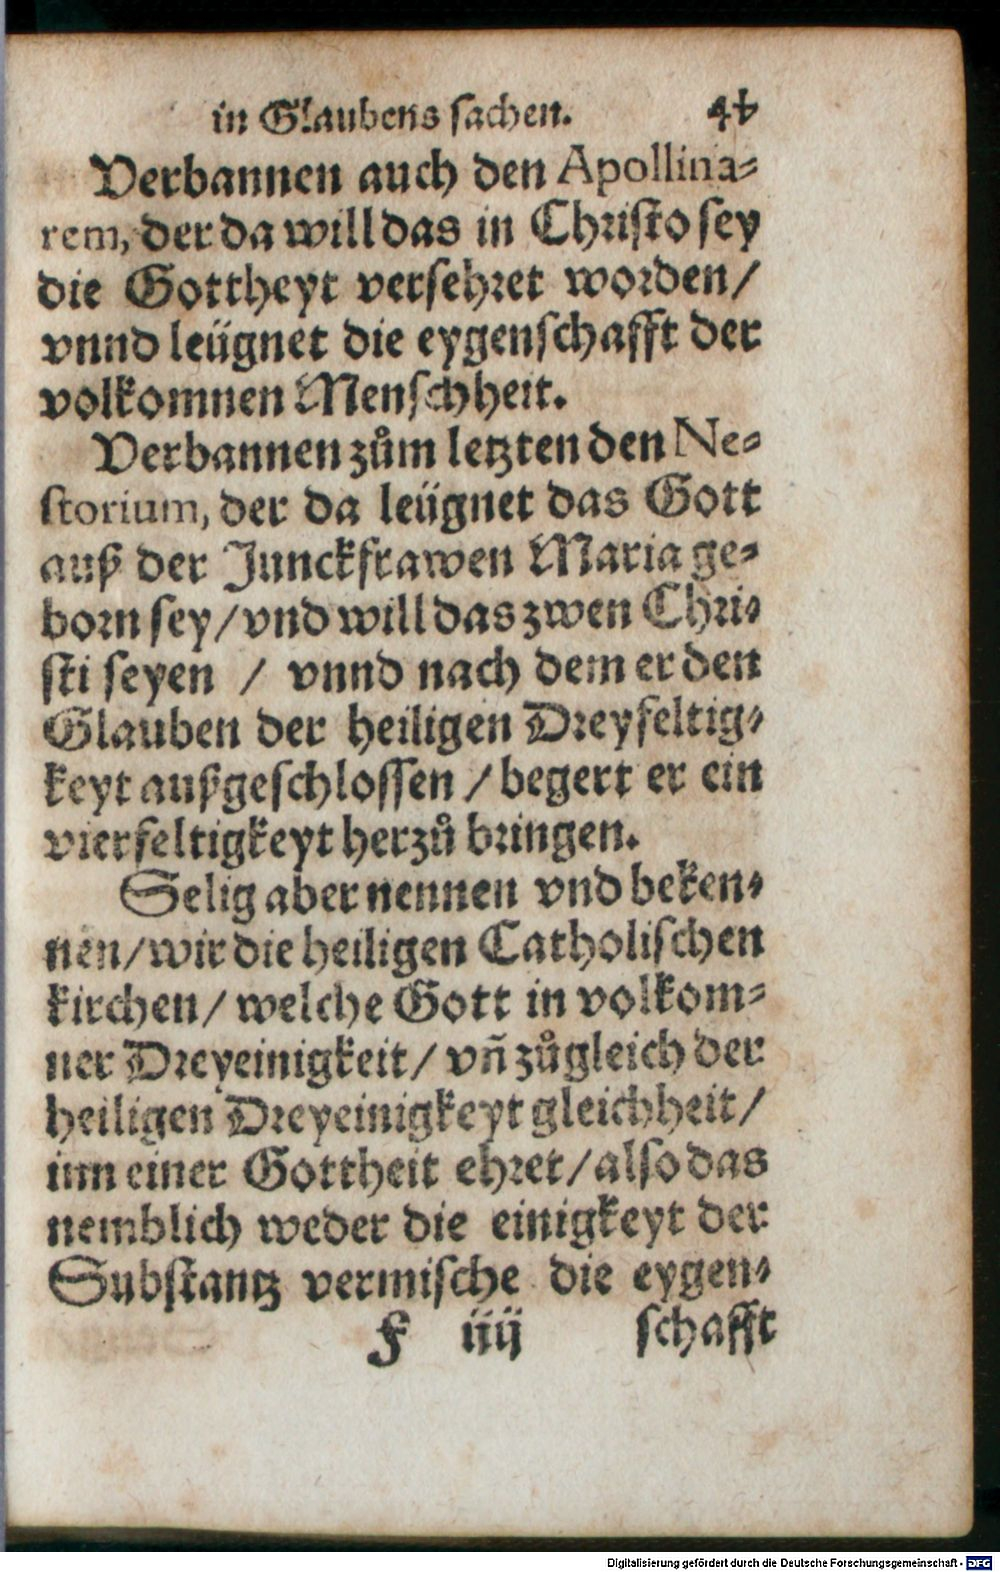 in Glaubens sachen. 44
Verbannen auch den Apollina-
rem, der da will das in Christo sey
die Gottheyt versehret worden/
vnnd leügnet die eygenschafft der
volkomnen Menschheit.
Verbannen zům letzten den Ne-
storium, der da leügnet das Gott
auß der Junckfrawen Maria ge-
born sey/vnd will das zwen Chri-
sti seyen / vnnd nach dem er den
Glauben der heiligen Dreyfeltig-
keyt außgeschlossen / begert er ein
vierfeltigkeyt herzů bringen.
Selig aber nennen vnd beken-
nen/wir die heiligen Catholischen
kirchen/ welche Gott in volkom-
ner Dreyeinigkeit/ vñ zůgleich der
heiligen Dreyeinigkeyt gleichheit/
inn einer Gottheit ehret/also das
nemblich weder die einigkeyt der
Substantz vermische die eygen-
F iiij schafft
Digitalisierung gefördert durch die Deutsche Forschungsgemeinschaft - DFG